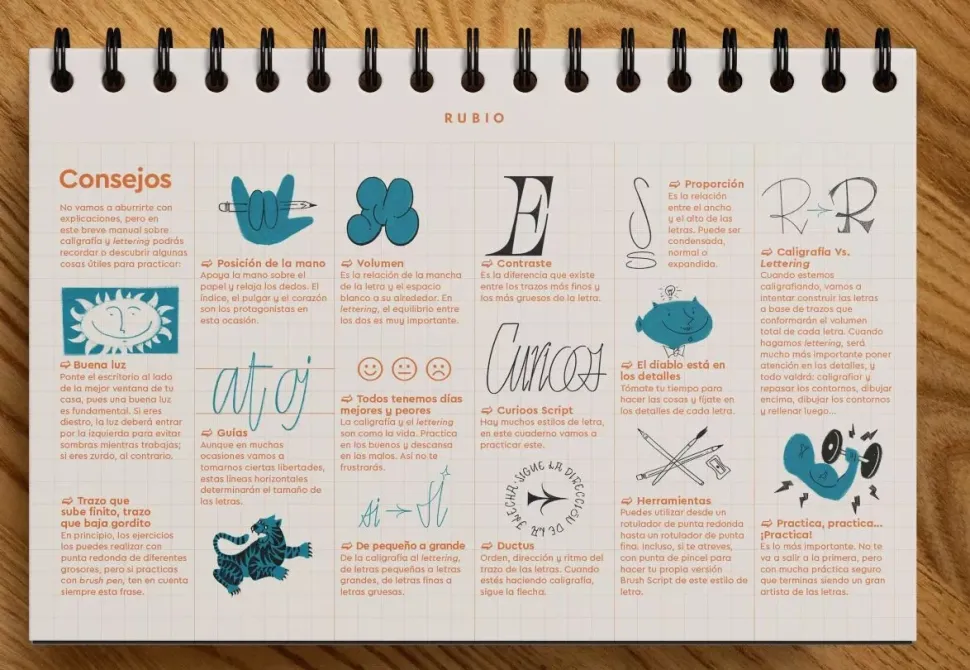 RUBIO
Consejos
No vamos a aburrirte con
explicaciones, pero en
este breve manual sobre
caligrafía y lettering podrás
recordar o descubrir algunas
cosas útiles para practicar:
➩ Buena luz
Ponte el escritorio al lado
de la mejor ventana de tu
casa, pues una buena luz
es fundamental. Si eres
diestro, la luz deberá entrar
por la izquierda para evitar
sombras mientras trabajas;
si eres zurdo, al contrario.
➩ Trazo que
sube finito, trazo
que baja gordito
En principio, los ejercicios
los puedes realizar con
punta redonda de diferentes
grosores, pero si practicas
con brush pen, ten en cuenta
siempre esta frase.
➩ Posición de la mano
Apoya la mano sobre el
papel y relaja los dedos. El
índice, el pulgar y el corazón
son los protagonistas en
esta ocasión.
at oj
➩ Guías
Aunque en muchas
ocasiones vamos a
tomarnos ciertas libertades,
estas líneas horizontales
determinarán el tamaño de
las letras.
➩ Volumen
Es la relación de la mancha
de la letra y el espacio
blanco a su alrededor. En
lettering, el equilibrio entre
los dos es muy importante.
➩ Todos tenemos días
mejores y peores
La caligrafía y el lettering
son como la vida. Practica
en los buenos y descansa
en las malos. Así no te
frustrarás.
si → Sí
➩ De pequeño a grande
De la caligrafía al lettering,
de letras pequeñas a letras
grandes, de letras finas a
letras gruesas.
E
➩ Contraste
Es la diferencia que existe
entre los trazos más finos y
los más gruesos de la letra.
Curioos
➩ Curioos Script
Hay muchos estilos de letra,
en este cuaderno vamos a
practicar este.
SIGUE LA DIRECCIÓN DE LA FLECHA
➩ Ductus
Orden, dirección y ritmo del
trazo de las letras. Cuando
estés haciendo caligrafía,
sigue la flecha.
S
S
➩ Proporción
Es la relación
entre el ancho
y el alto de las
letras. Puede ser
condensada,
normal o
expandida.
➩ El diablo está en
los detalles
Tómate tu tiempo para
hacer las cosas y fíjate en
los detalles de cada letra.
➩ Herramientas
Puedes utilizar desde un
rotulador de punta redonda
hasta un rotulador de punta
fina. Incluso, si te atreves,
con punta de pincel para
hacer tu propia versión
Brush Script de este estilo de
letra.
R → R
➩ Caligrafía Vs.
Lettering
Cuando estemos
caligrafiando, vamos a
intentar construir las letras
a base de trazos que
conformarán el volumen
total de cada letra. Cuando
hagamos lettering, será
mucho más importante poner
atención en los detalles, y
todo valdrá: caligrafiar y
repasar los contornos, dibujar
encima, dibujar los contornos
y rellenar luego...
➩ Practica, practica...
¡Practica!
Es lo más importante. No te
va a salir a la primera, pero
con mucha práctica seguro
que terminas siendo un gran
artista de las letras.